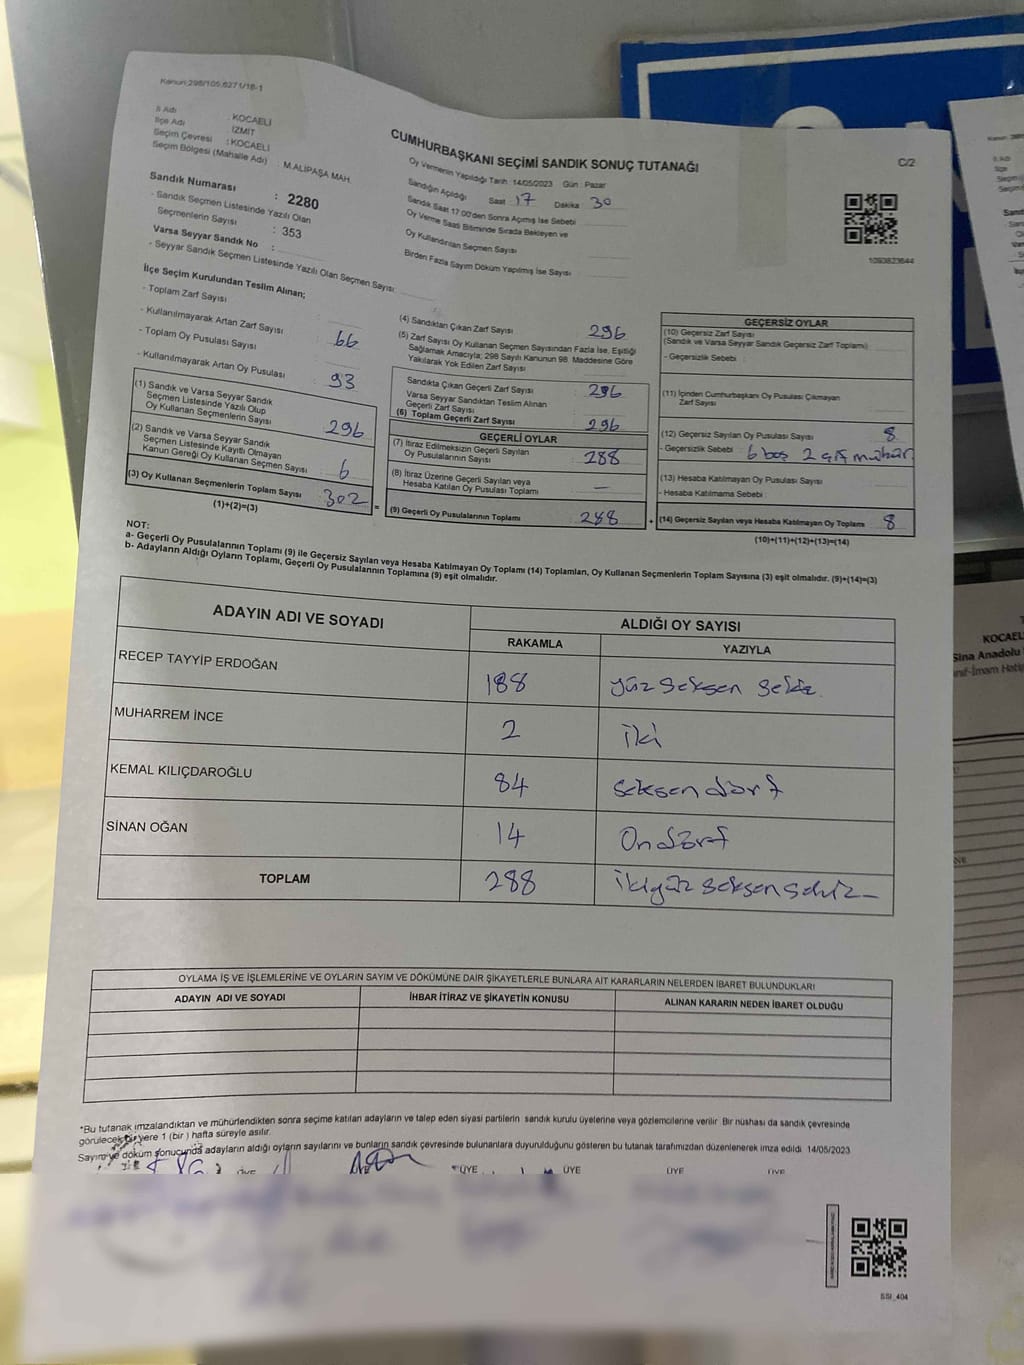 Kanun:298/105,6271/18-1
İl Adı : KOCAELİ
İlçe Adı : İZMİT
Seçim Çevresi : KOCAELİ
Seçim Bölgesi (Mahalle Adı) : M.ALİPAŞA MAH.
CUMHURBAŞKANI SEÇİMİ SANDIK SONUÇ TUTANAĞI
C/2
Oy Vermenin Yapıldığı Tarih :14/05/2023 Gün : Pazar
Sandığın Açıldığı Saat : 17 Dakika : 30
Sandık Saat 17.00'den Sonra Açılmış İse Sebebi
Oy Verme Saati Bitiminde Sırada Bekleyen ve
Oy Kullandırılan Seçmen Sayısı
Birden Fazla Sayım Döküm Yapılmış İse Sayısı
1093823644
Sandık Numarası : 2280
- Sandık Seçmen Listesinde Yazılı Olan
Seçmenlerin Sayısı : 353
Varsa Seyyar Sandık No :
- Seyyar Sandık Seçmen Listesinde Yazılı Olan Seçmen Sayısı
İlçe Seçim Kurulundan Teslim Alınan;
- Toplam Zarf Sayısı
- Kullanılmayarak Artan Zarf Sayısı : 66
- Toplam Oy Pusulası Sayısı
- Kullanılmayarak Artan Oy Pusulası : 93
(1) Sandık ve Varsa Seyyar Sandık
Seçmen Listesinde Yazılı Olup
Oy Kullanan Seçmenlerin Sayısı : 296
(2) Sandık ve Varsa Seyyar Sandık
Seçmen Listesinde Kayıtlı Olmayan
Kanun Gereği Oy Kullanan Seçmen Sayısı : 6
(3) Oy Kullanan Seçmenlerin Toplam Sayısı : 302
(1)+(2)=(3)
(4) Sandıktan Çıkan Zarf Sayısı : 296
(5) Zarf Sayısı Oy Kullanan Seçmen Sayısından Fazla İse, Eşitliği
Sağlamak Amacıyla; 298 Sayılı Kanunun 98. Maddesine Göre
Yakılarak Yok Edilen Zarf Sayısı
Sandıkta Çıkan Geçerli Zarf Sayısı : 296
Varsa Seyyar Sandıktan Teslim Alınan
Geçerli Zarf Sayısı
(6) Toplam Geçerli Zarf Sayısı : 296
GEÇERLİ OYLAR
(7) İtiraz Edilmeksizin Geçerli Sayılan
Oy Pusulalarının Sayısı : 288
(8) İtiraz Üzerine Geçerli Sayılan veya
Hesaba Katılan Oy Pusulası Toplamı : —
= (9) Geçerli Oy Pusulalarının Toplamı : 288 +
GEÇERSİZ OYLAR
(10) Geçersiz Zarf Sayısı
(Sandık ve Varsa Seyyar Sandık Geçersiz Zarf Toplamı)
- Geçersizlik Sebebi :
(11) İçinden Cumhurbaşkanı Oy Pusulası Çıkmayan
Zarf Sayısı
(12) Geçersiz Sayılan Oy Pusulası Sayısı : 8
- Geçersizlik Sebebi : 6 boş 2 çift mühür
(13) Hesaba Katılmayan Oy Pusulası Sayısı
- Hesaba Katılmama Sebebi :
(14) Geçersiz Sayılan veya Hesaba Katılmayan Oy Toplamı : 8
(10)+(11)+(12)+(13)=(14)
NOT:
a- Geçerli Oy Pusulalarının Toplamı (9) ile Geçersiz Sayılan veya Hesaba Katılmayan Oy Toplamı (14) Toplamları, Oy Kullanan Seçmenlerin Toplam Sayısına (3) eşit olmalıdır. (9)+(14)=(3)
b- Adayların Aldığı Oyların Toplamı, Geçerli Oy Pusulalarının Toplamına (9) eşit olmalıdır.
ADAYIN ADI VE SOYADI
ALDIĞI OY SAYISI
RAKAMLA YAZIYLA
RECEP TAYYİP ERDOĞAN 188 yüz seksen sekiz
MUHARREM İNCE 2 iki
KEMAL KILIÇDAROĞLU 84 seksen dört
SİNAN OĞAN 14 Ondört
TOPLAM 288 ikiyüz seksen sekiz –
OYLAMA İŞ VE İŞLEMLERİNE VE OYLARIN SAYIM VE DÖKÜMÜNE DAİR ŞİKAYETLERLE BUNLARA AİT KARARLARIN NELERDEN İBARET BULUNDUKLARI
ADAYIN ADI VE SOYADI İHBAR İTİRAZ VE ŞİKAYETİN KONUSU ALINAN KARARIN NEDEN İBARET OLDUĞU
*Bu tutanak imzalandıktan ve mühürlendikten sonra seçime katılan adayların ve talep eden siyasi partilerin sandık kurulu üyelerine veya gözlemcilerine verilir. Bir nüshası da sandık çevresinde
görülecek bir yere 1 (bir ) hafta süreyle asılır.
Sayım ve döküm sonucunda adayların aldığı oyların sayılarını ve bunların sandık çevresinde bulunanlara duyurulduğunu gösteren bu tutanak tarafımızdan düzenlenerek imza edildi. 14/05/2023
ÜYE ÜYE ÜYE ÜYE ÜYE
SSİ_404
KOCAEL
Sina Anadolu